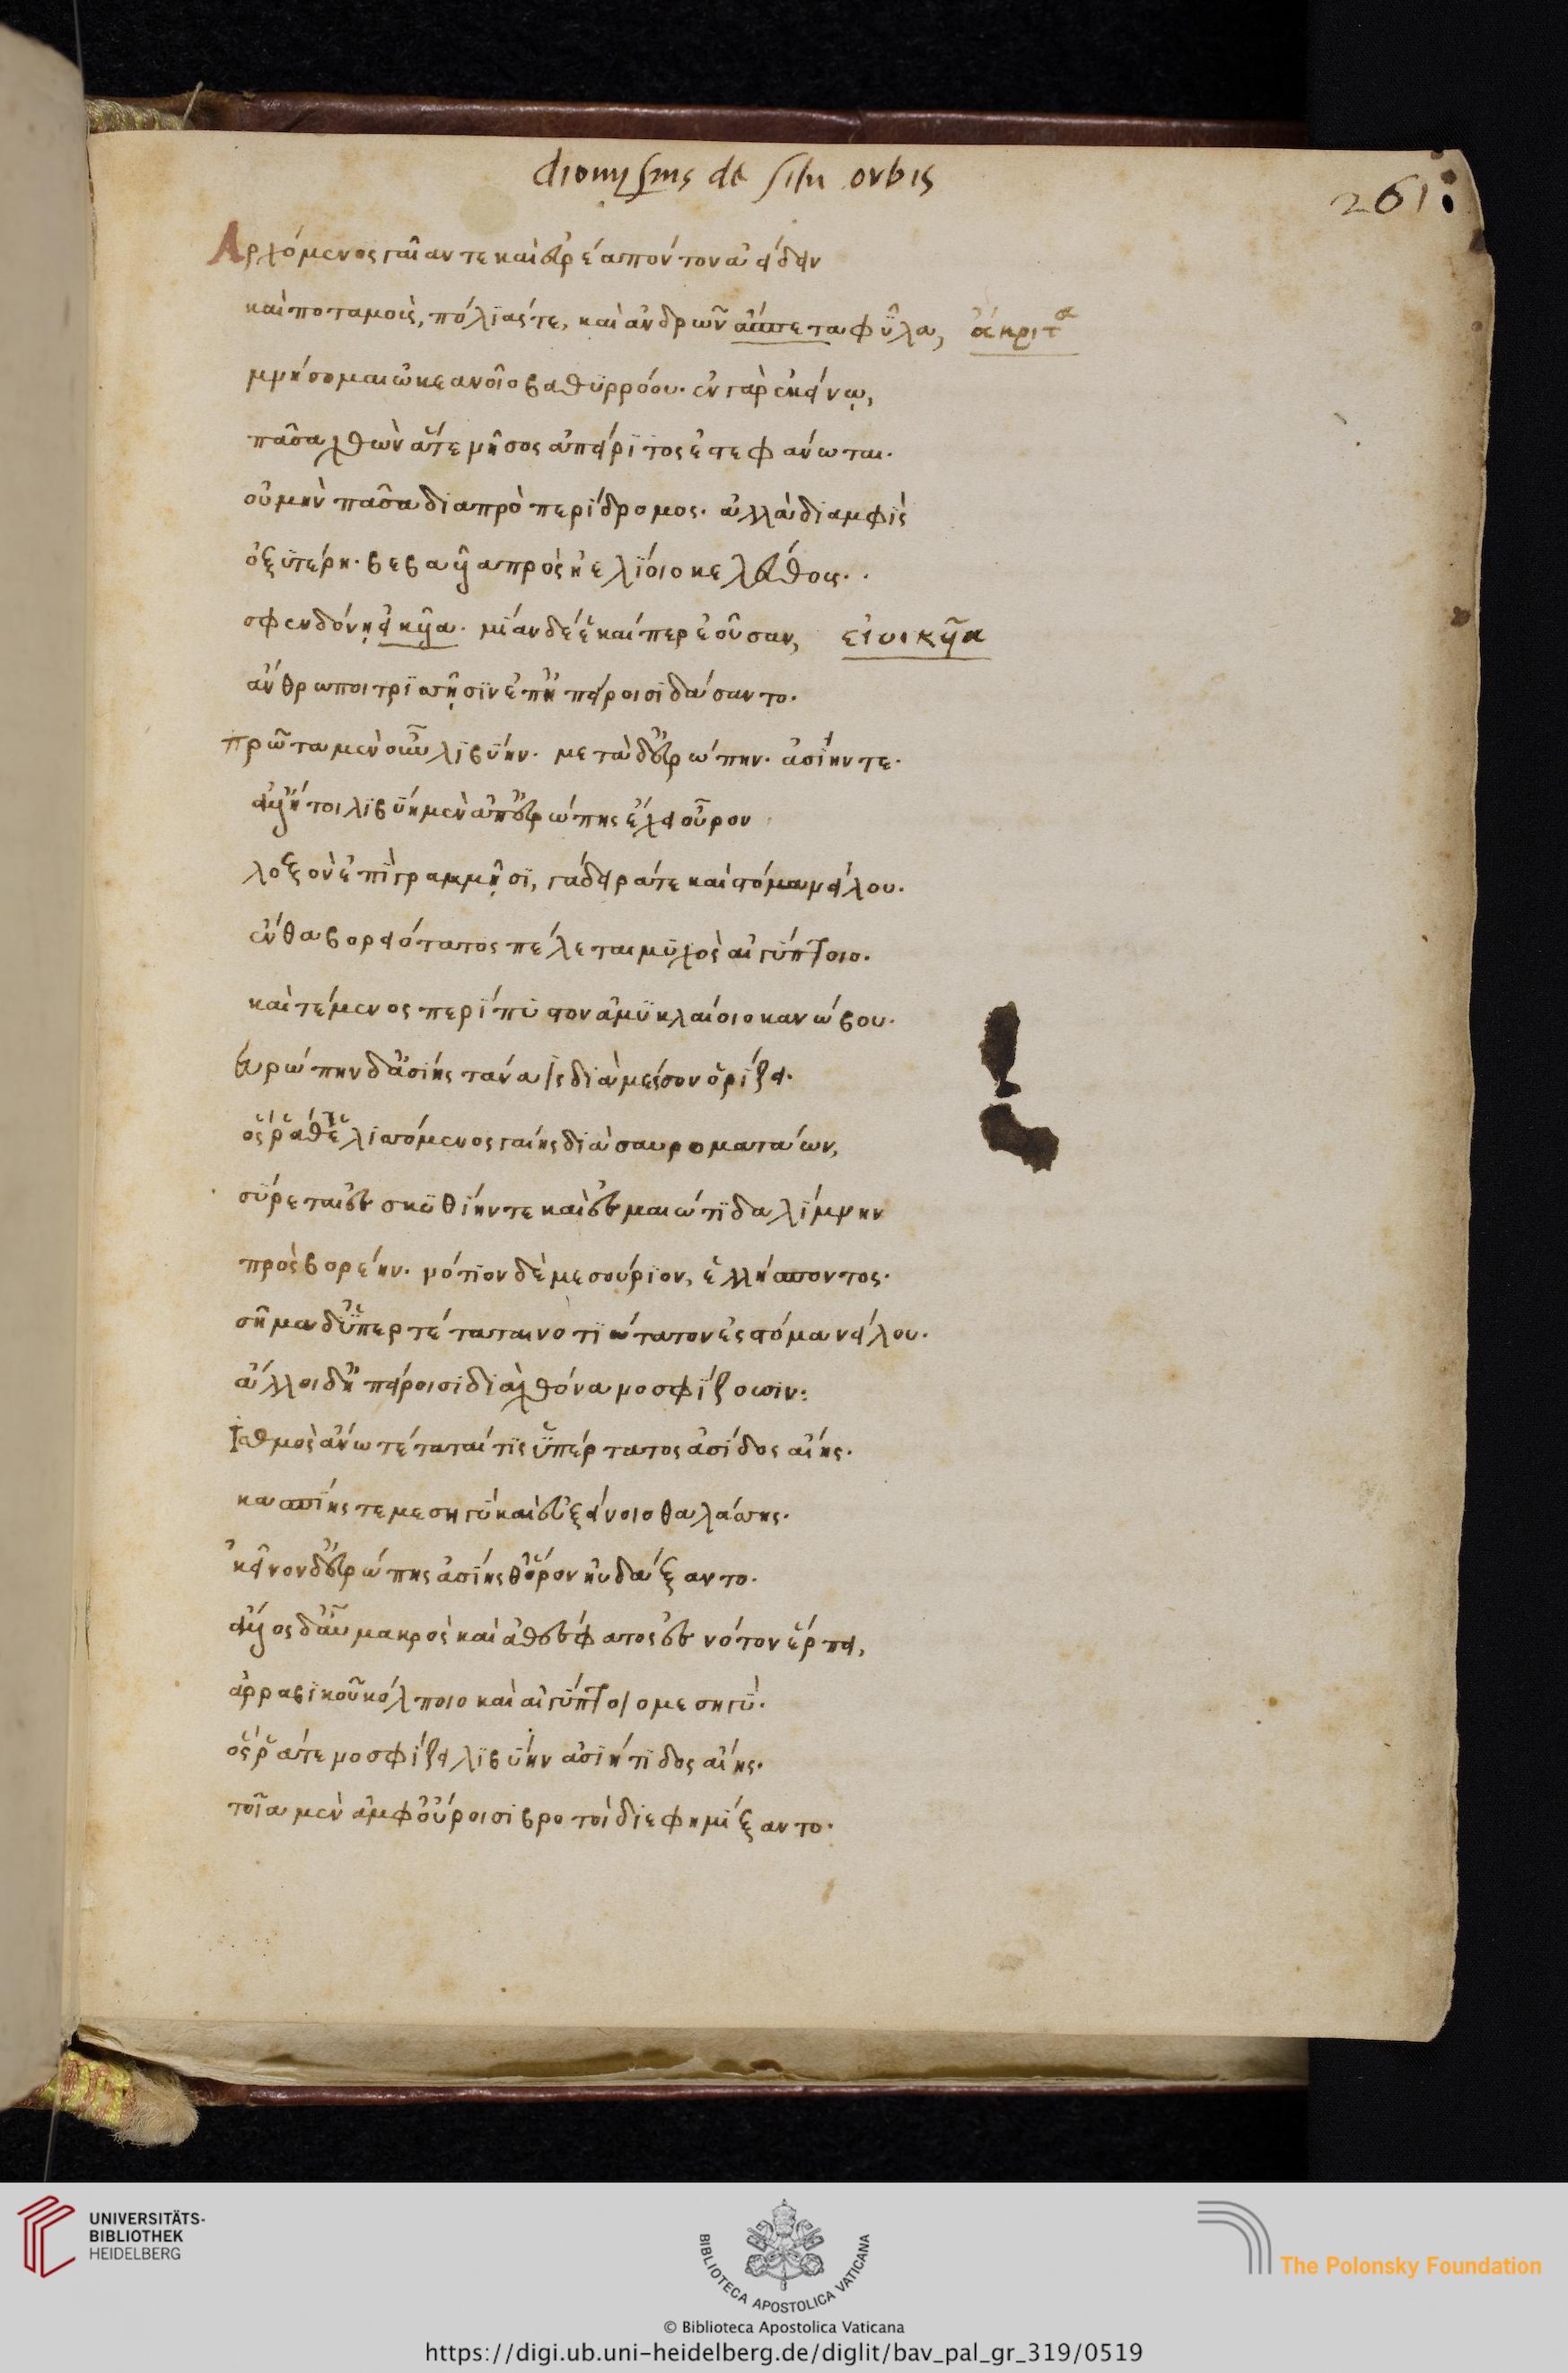 dionysius de situ orbis
261
Ἀρχόμενος γαῖάν τε καὶ εὐρέα πόντον ἀείδειν
καὶ ποταμοὺς, πόλϊάς τε, καὶ ἀνδρῶν ἄσπετα φῦλα, ἄκριτα
μνήσομαι ὠκεανοῖο βαθϋρρόου. ἐν γὰρ ἐκείνῳ,
πᾶσα χθὼν ἅτε νῆσος ἀπείρϊτος ἐστεφάνωται.
οὐ μὴν πᾶσα διαπρὸ περίδρομος. ἀλλὰ διαμφὶς
ὀξϋτέρη. βεβαυῖα πρὸς ἠελίοιο κελεύθους.
σφενδόνῃ εἰκυῖα. μίαν δέ ἑ καίπερ ἐοῦσαν, εἰοικῦῖα
ἄνθρωποι τρϊσσῇσϊν ἐπ' ἠπείροισι δάσαντο.
πρῶτα μὲν οὖν λϊβύην. μετὰ δ' εὐρώπην. ἀσίην τε.
ἀλλ' ἤτοι λϊβύη μὲν ἀπ' εὐρώπης ἔχει οὖρον
λοξὸν ἐπὶ γραμμῇσϊ, γάδειρά τε καὶ στόμα νείλου.
ἔνθα βορειότατος πέλεται μϋχὸς αἰγύπτοιο.
καὶ τέμενος περίπϋστον ἀμϋκλαίοιο κανώβου.
εὐρώπην δ' ἀσίης τάναϊς διὰ μέσσον ὁρίζει.
ὅς ῥά θ' ἑλισσόμενος γαίης διὰ σαυροματάων,
σύρεται ἐς σκυθίην τε καὶ ἐς μαιώτϊδα λίμνην
πρὸς βορέην. νότϊον δὲ μεσούριον, ἑλλήσποντος.
σῆμα δ' ὑπερτέταται νοτϊώτατον ἐς στόμα νείλου.
ἄλλοι δ' ἠπείροισι διὰ χθόνα νοσφίζουσιν:
Ἰσθμὸς ἄνω τέταταί τϊς ὑπέρτατος ἀσίδος αἴης.
κασπίης τε μεσηγὺ καὶ εὐξείνοιο θαλάσσης.
κεῖνον δ' εὐρώπης ἀσίης θ' ὅρον ηὐδάξαντο.
ἄλλος δ' αὖ μακρὸς καὶ ἀθέσφατος ἐς νότον ἕρπει,
ἀρραβϊκοῦ κόλποιο καὶ αἰγύπτοιο μεσηγύ.
ὅς ῥά τε νοσφίζει λϊβύην ἀσϊήτϊδος αἴης.
τοῖα μὲν ἀμφ' οὔροισι βροτοὶ διεφημίξαντο.
UNIVERSITÄTS-
BIBLIOTHEK
HEIDELBERG
BIBLIOTECA APOSTOLICA VATICANA
The Polonsky Foundation
© Biblioteca Apostolica Vaticana
https://digi.ub.uni-heidelberg.de/diglit/bav_pal_gr_319/0519